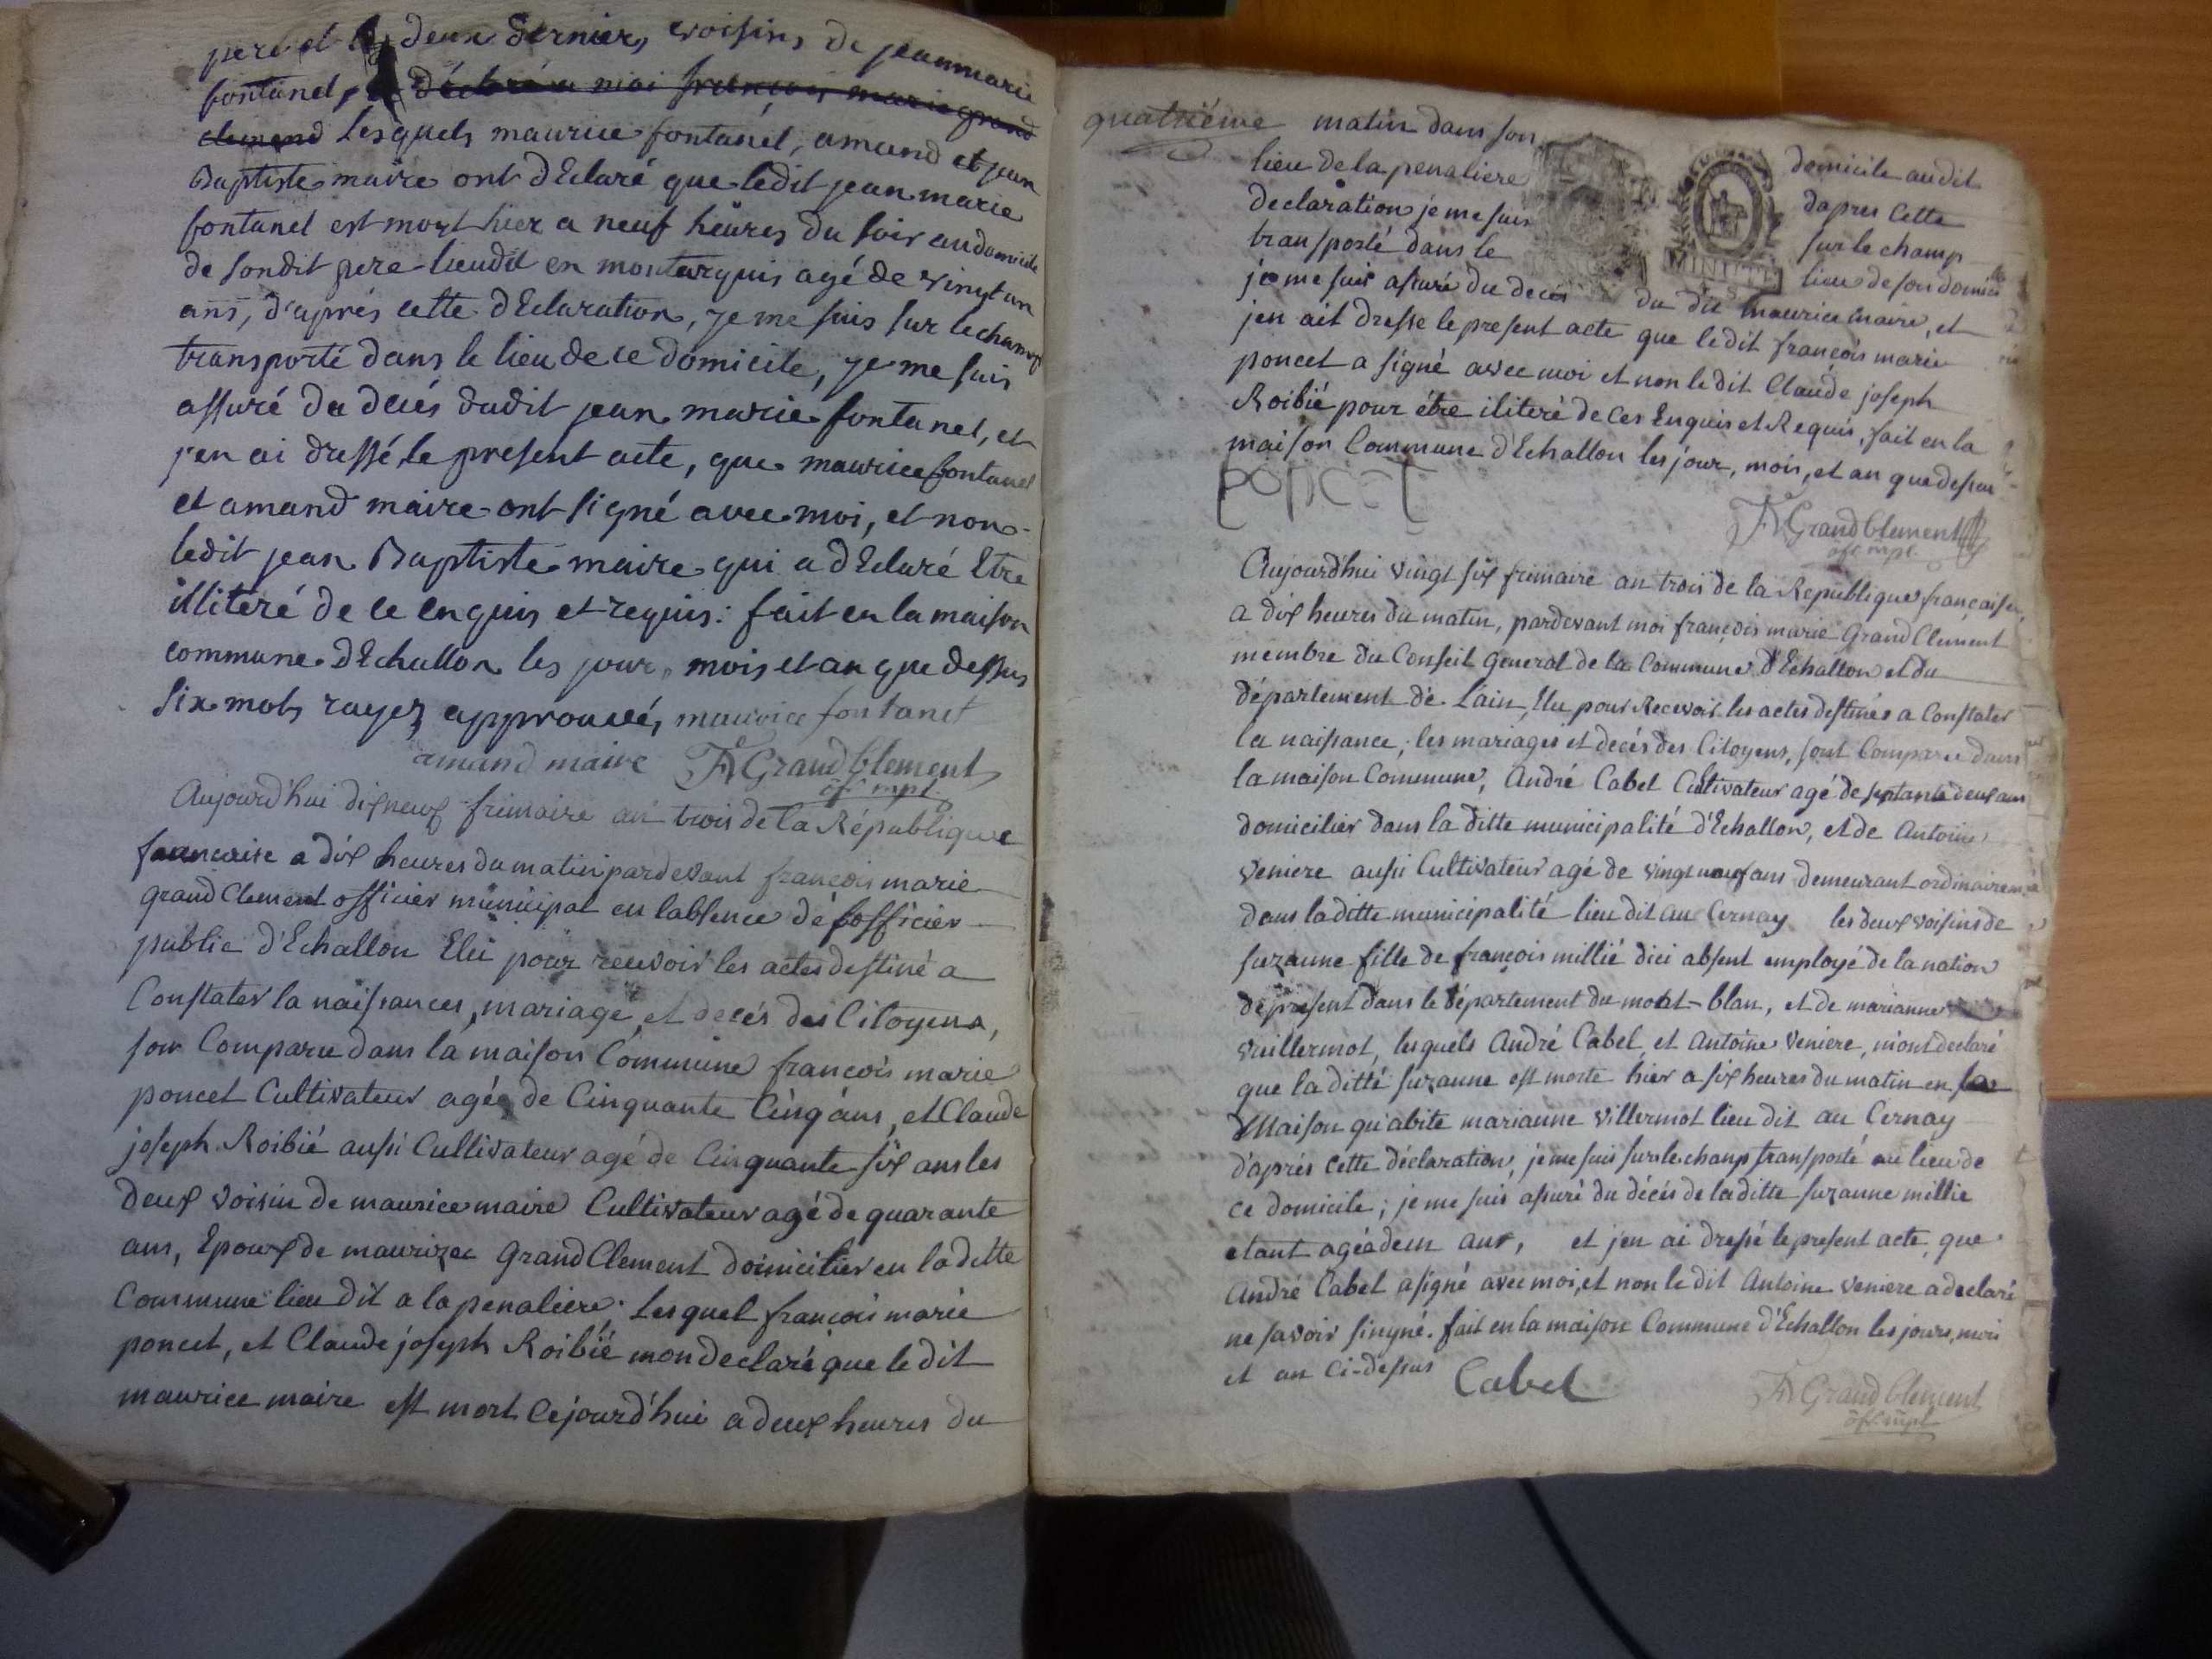 pere et les deux dernier, voisins de jeanmarie
fontanel, déclaré a moi francois marie grand
clemend lesquels maurice fontanel, amand et jean
Baptiste maire ont dEclaré que ledit jean marie
fontanel est mort hier a neuf heures du soir audomicile
de sondit pere lieudit en montarquis agé de vingt un
ans, d'aprés cette dEclaration, je me suis sur lechamp
transporté dans le lieu de ce domicile, je me suis
assuré du decés dudit jean marie fontanel, et
j'en ai dressé le present acte, que maurice fontanel
et amand maire ont signé avec moi, et non
ledit jean Baptiste maire qui a dEclaré Etre
illiteré de ce enquis et requis: fait en la maison
commune dEchallon les jour, mois et an que dessus
six mots rayez approuvé, maurice fontanet
amand maire FM Grandclement
off. mpl.
Aujourd'hui dixneuf frimaire an trois de la République
francaise a dix heures du matin pardevant françois marie
grand Clement officier municipal en lablence de lofficier
public d'Echallon Elu pour recevoir les actes destiné a
Constater la naissances, mariage, et decés des Citoyens,
son Comparu dans la maison Commune francois marie
poncet Cultivateur agée de Cinquante Cinq ans, et Claude
joseph Roibié aussi Cultivateur agé de Cinquante six ans les
deux voisin de maurice maire Cultivateur agé de quarante
ans, Epoux de maurizee Grand Clement domicilier en ladette
Commune lieu dit a la penaliere; Lesquel francois marie
poncet, et Claude joseph Roibié mon declaré que le dit
maurice maire est mort Cejourd'hui a deux heures du
quatriéme matin dans son domicile audit
lieu de la penaliere dapres Cette
declaration je me suis sur le champ
transporté dans le lieu de son domicile
je me suis assuré du decés du dit maurice maire, et
jen ait dresse le present acte que ledit françois marie
poncet a signé avec moi et non ledit Claude joseph
Roibié pour être iliteré de Ces Enquis et Requis, fait en la
maison Commune d'Echallon les jour, mois, et an que dessus
MINUTE
poncet
FM Grandclement
off. mpl.
Aujourd'hui vingt six frimaire an trois de la Republique française,
a dix heures du matin, pardevant moi françois marie Grand Clement
membre du Conseil general de la Commune d'Echallon et du
département de Lain, Elu pour Recevoir les actes destinés a Constater
la naissance, les mariages et decés des Citoyens, sont Comparu dans
la maison Commune, André Cabet Cultivateur agé de septante deux ans
domicilier dans la ditte municipalité d'Echallon, et de Antoine
veniere aussi Cultivateur agé de vingt neuf ans demeurant ordinairement
dans laditte municipalité lieu dit au Cernay les deux voisins de
suzanne fille de françois millié dici absent employé de la nation
de present dans le département du mont-blan, et de marianne
vuillermot, lesquels André Cabet, et Antoine veniere, m'ont declaré
que la ditte suzanne est morte hier a six heures du matin en sa
Maison qu'abite marianne villermot lieu dit au Cernay
d'aprés cette déclaration, je me suis sur le champ transporté au lieu de
ce domicile; je me suis assuré du décés de laditte suzanne millie
etant agée deux ans, et jen ai dressé le present acte, que
André Cabet a signé avec moi, et non le dit Antoine veniere a declaré
ne savoir singné. fait en la maison Commune d'Echallon les jours, mois
et an Ci-dessus Cabet
FM Grandclement
off. mpl.